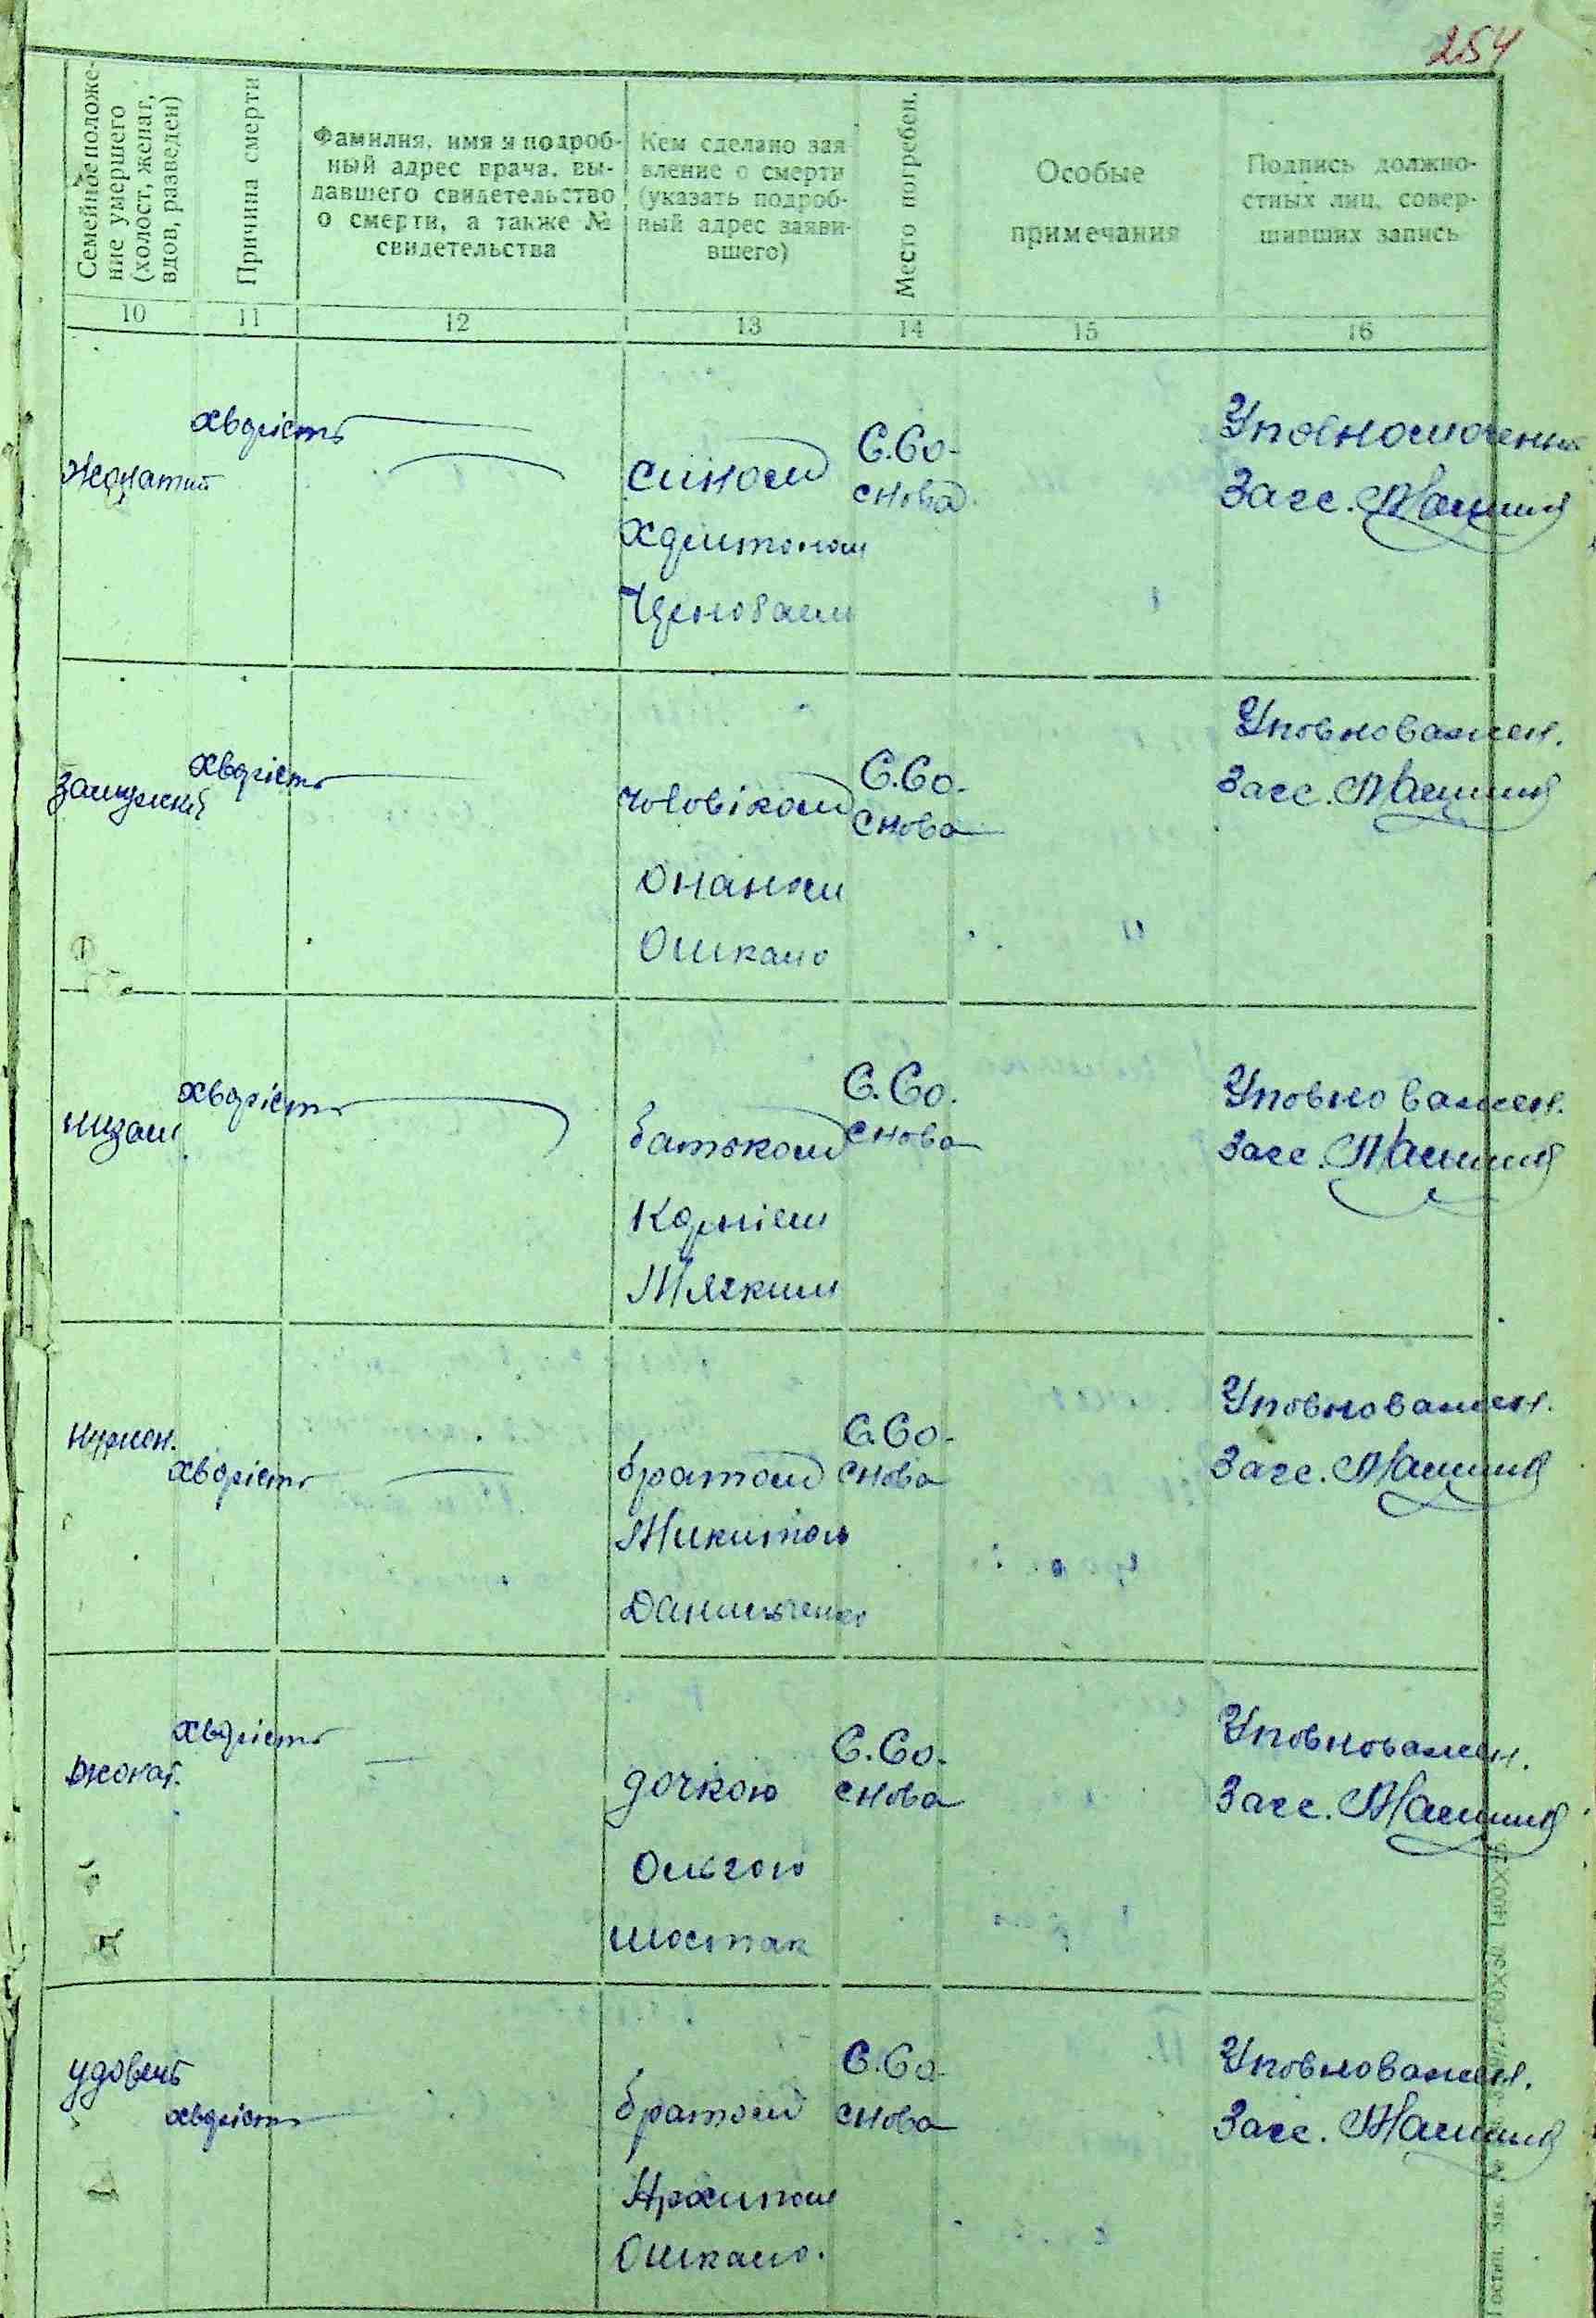 254
Семейное положе-
ние умершего
(холост, женат,
вдов, разведен)
Причина смерти
Фамилия, имя и подроб-
ный адрес врача, вы-
давшего свидетельство
о смерти, а также №
свидетельства
Кем сделано зая
вление о смерти
(указать подроб-
ный адрес заяви-
вшего)
Место погребен.
Особые
примечания
Подпись должно-
стных лиц, совер-
шивших запись
10 11 12 13 14 15 16
Жонатий
хворість
сином
Харитоном
С.Со-
снова
Уповномочений
Загс.
замужній
хворість
чоловіком
Онаном
Ошкало
С.Со.
снова
Уповноважен.
Загс.
хворість
батьком
Корнієм
Мягким
С.Со.
снова
Уповноважен.
Загс.
хворість
братом
Микитою
Данильченко
С.Со-
снова
Уповноважен.
Загс.
жонат.
хворість
дочкою
Ольгою
Шостак
С.Со.
снова
Уповноважен.
Загс.
удовець
хворість
братом
Архипом
Ошкало.
С.Со-
снова
Уповноважен.
Загс.